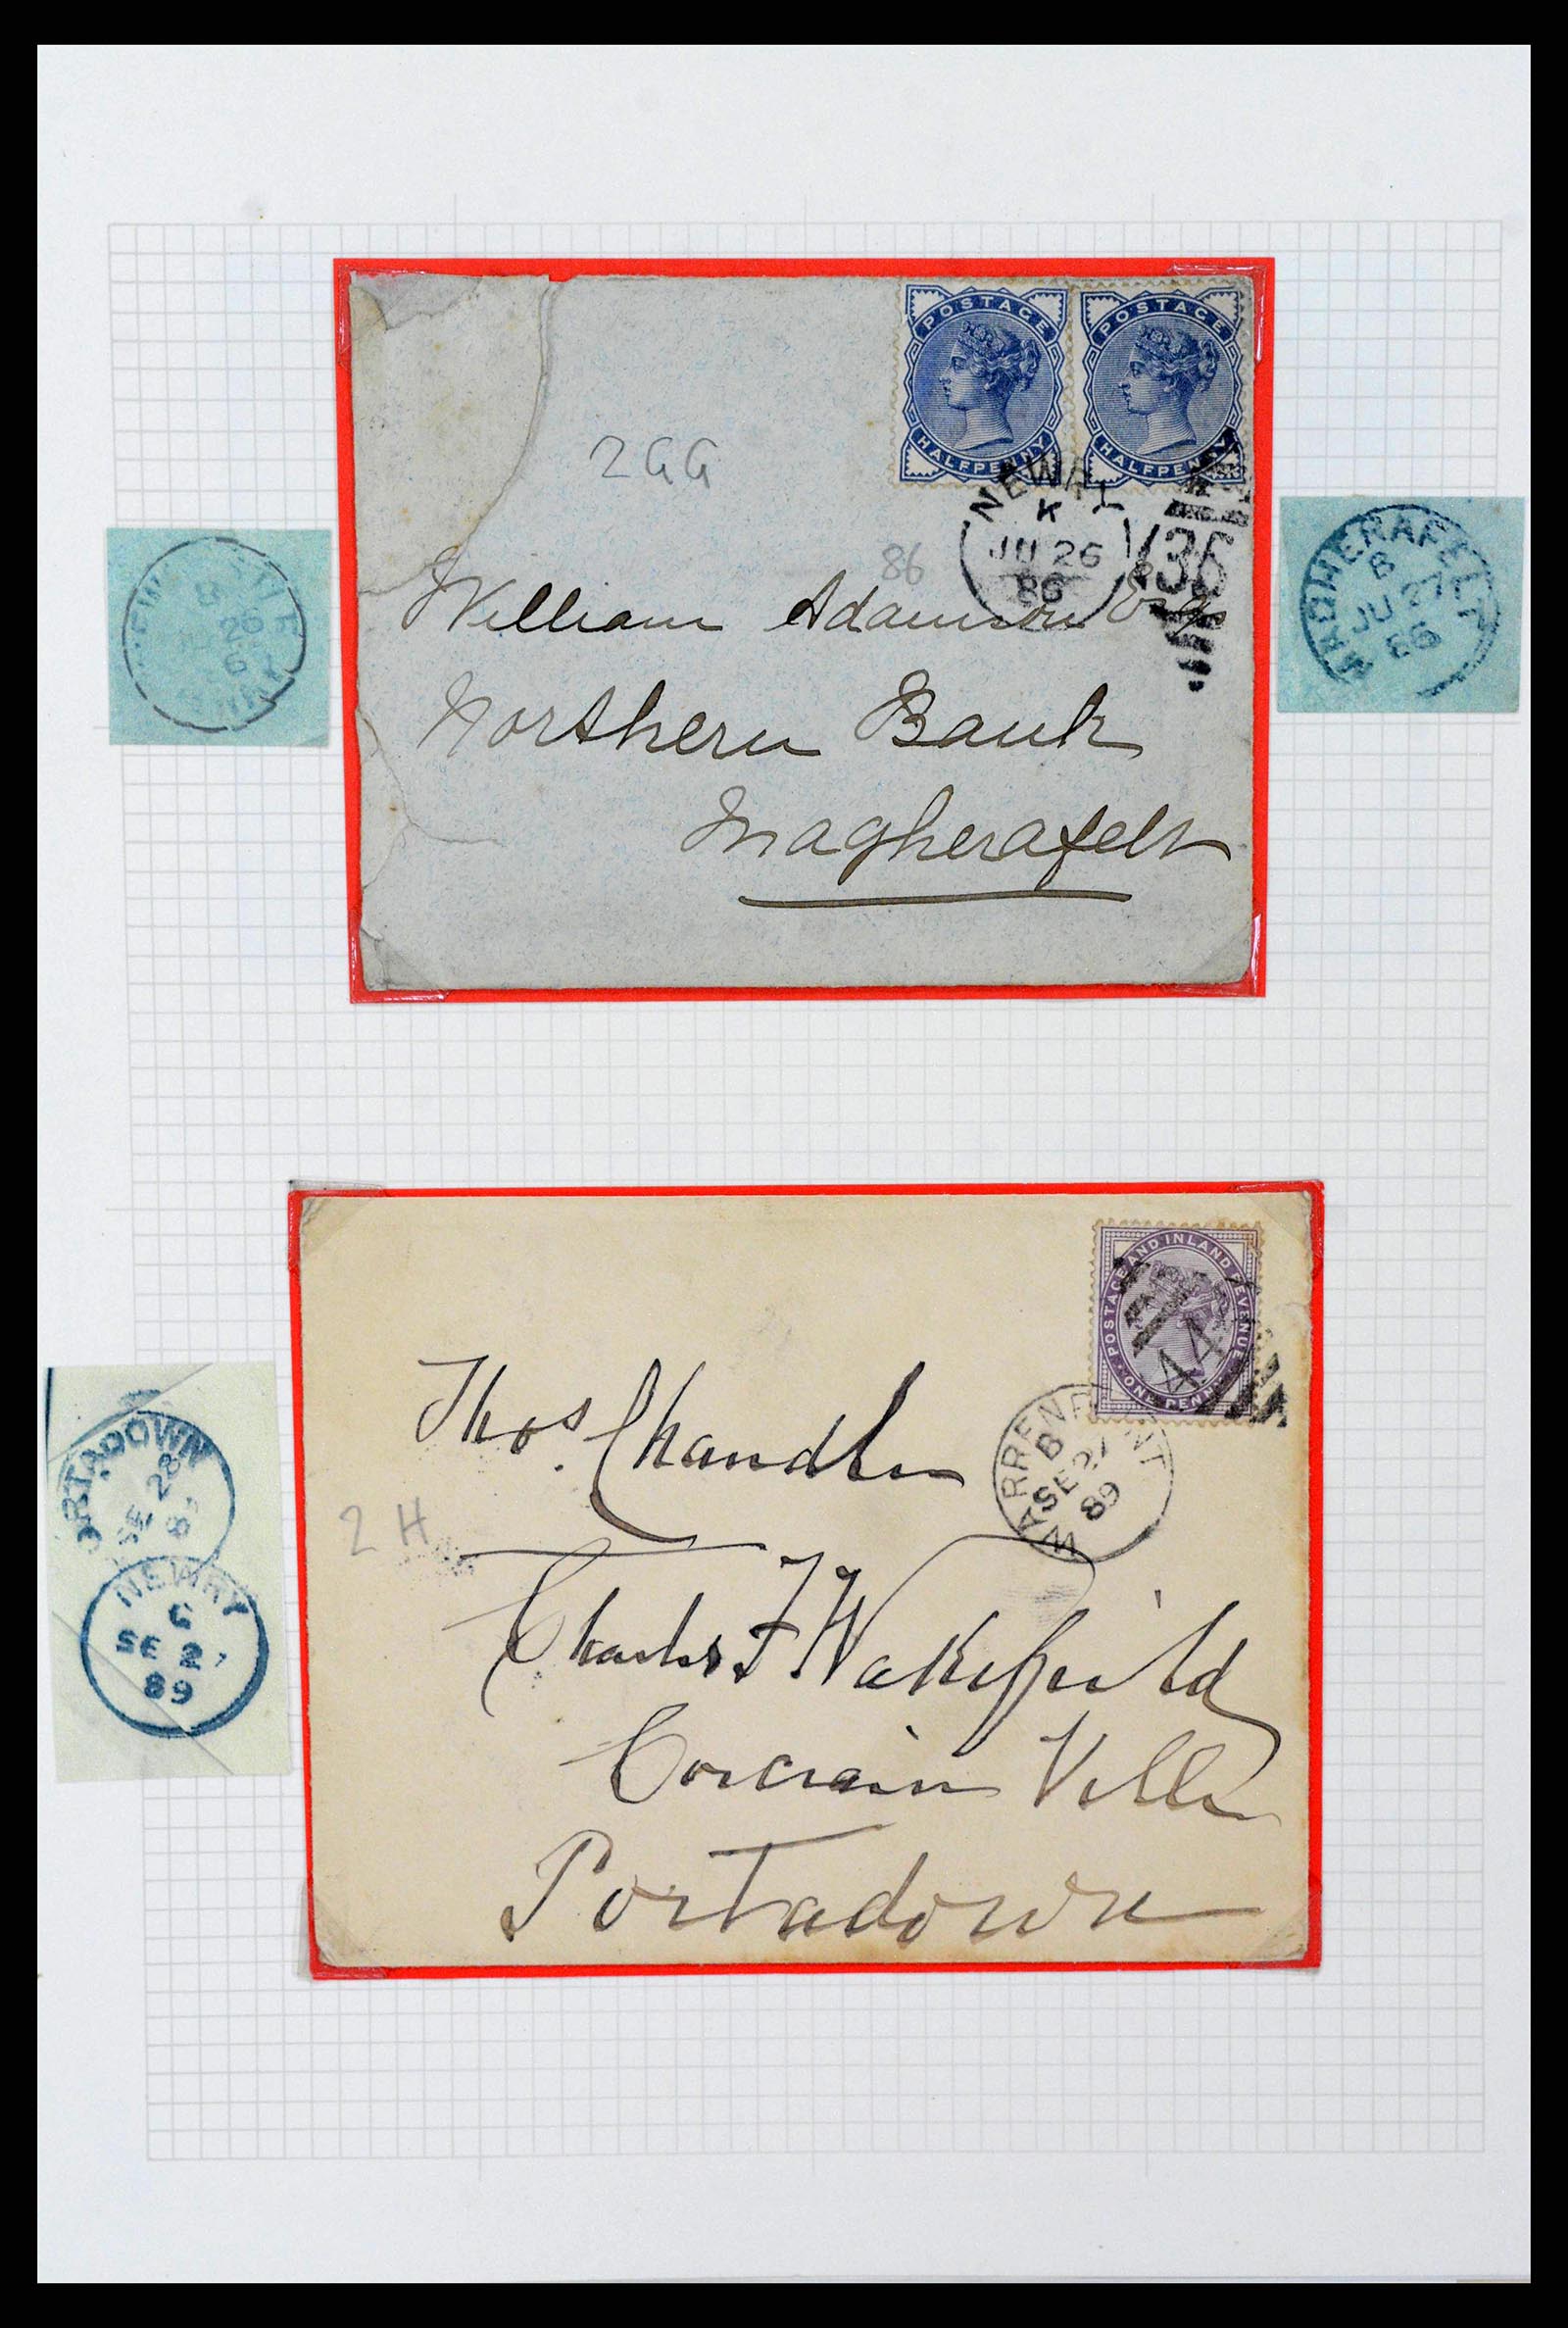 POSTAGE
HALFPENNY
POSTAGE
HALFPENNY
2GG
NEWRY
K
JU 26
86
86
William Adamson Esqr
Northern Bank
Magherafelt
B
26
MAGHERAFELT
B
JU 27
86
POSTAGE AND INLAND REVENUE
ONE PENNY
44
WARRENPOINT
B
SE 27
89
Thos. Chandler
2 H
Charles F Wakefield
Corcrain Villa
Portadown
PORTADOWN
SE 28
89
NEWRY
C
SE 27
89